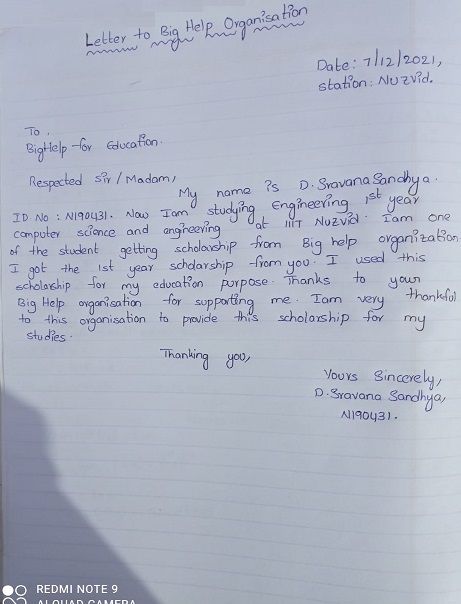 Letter to Big Help Organisation
Date: 7/12/2021,
Station: Nuzvid.
To,
BigHelp for Education.
Respected Sir/Madam,
My name is D. Sravana Sandhya.
ID No: N190431. Now Iam studying Engineering 1st year
computer science and engineering at IIIT Nuzvid. Iam one
of the student getting scholarship from Big help organization
I got the 1st year scholarship from you. I used this
scholarship for my education purpose. Thanks to your
Big Help organisation for supporting me. Iam very thankful
to this organisation to provide this scholarship for my
studies.
Thanking you,
Yours Sincerely,
D. Sravana Sandhya,
N190431.
REDMI NOTE 9
AI QUAD CAMERA